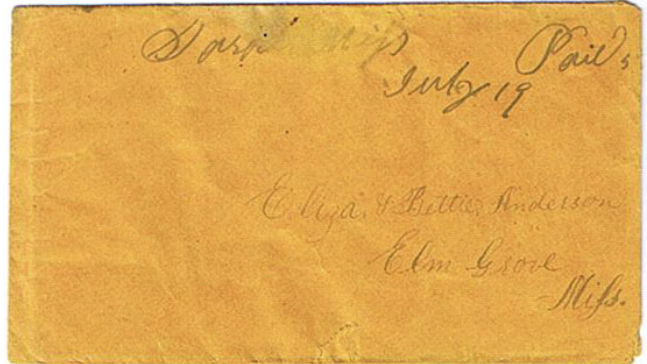 Miss Paid 5
July 19
Eliza & Bettie Anderson
Elm Grove
Miss.